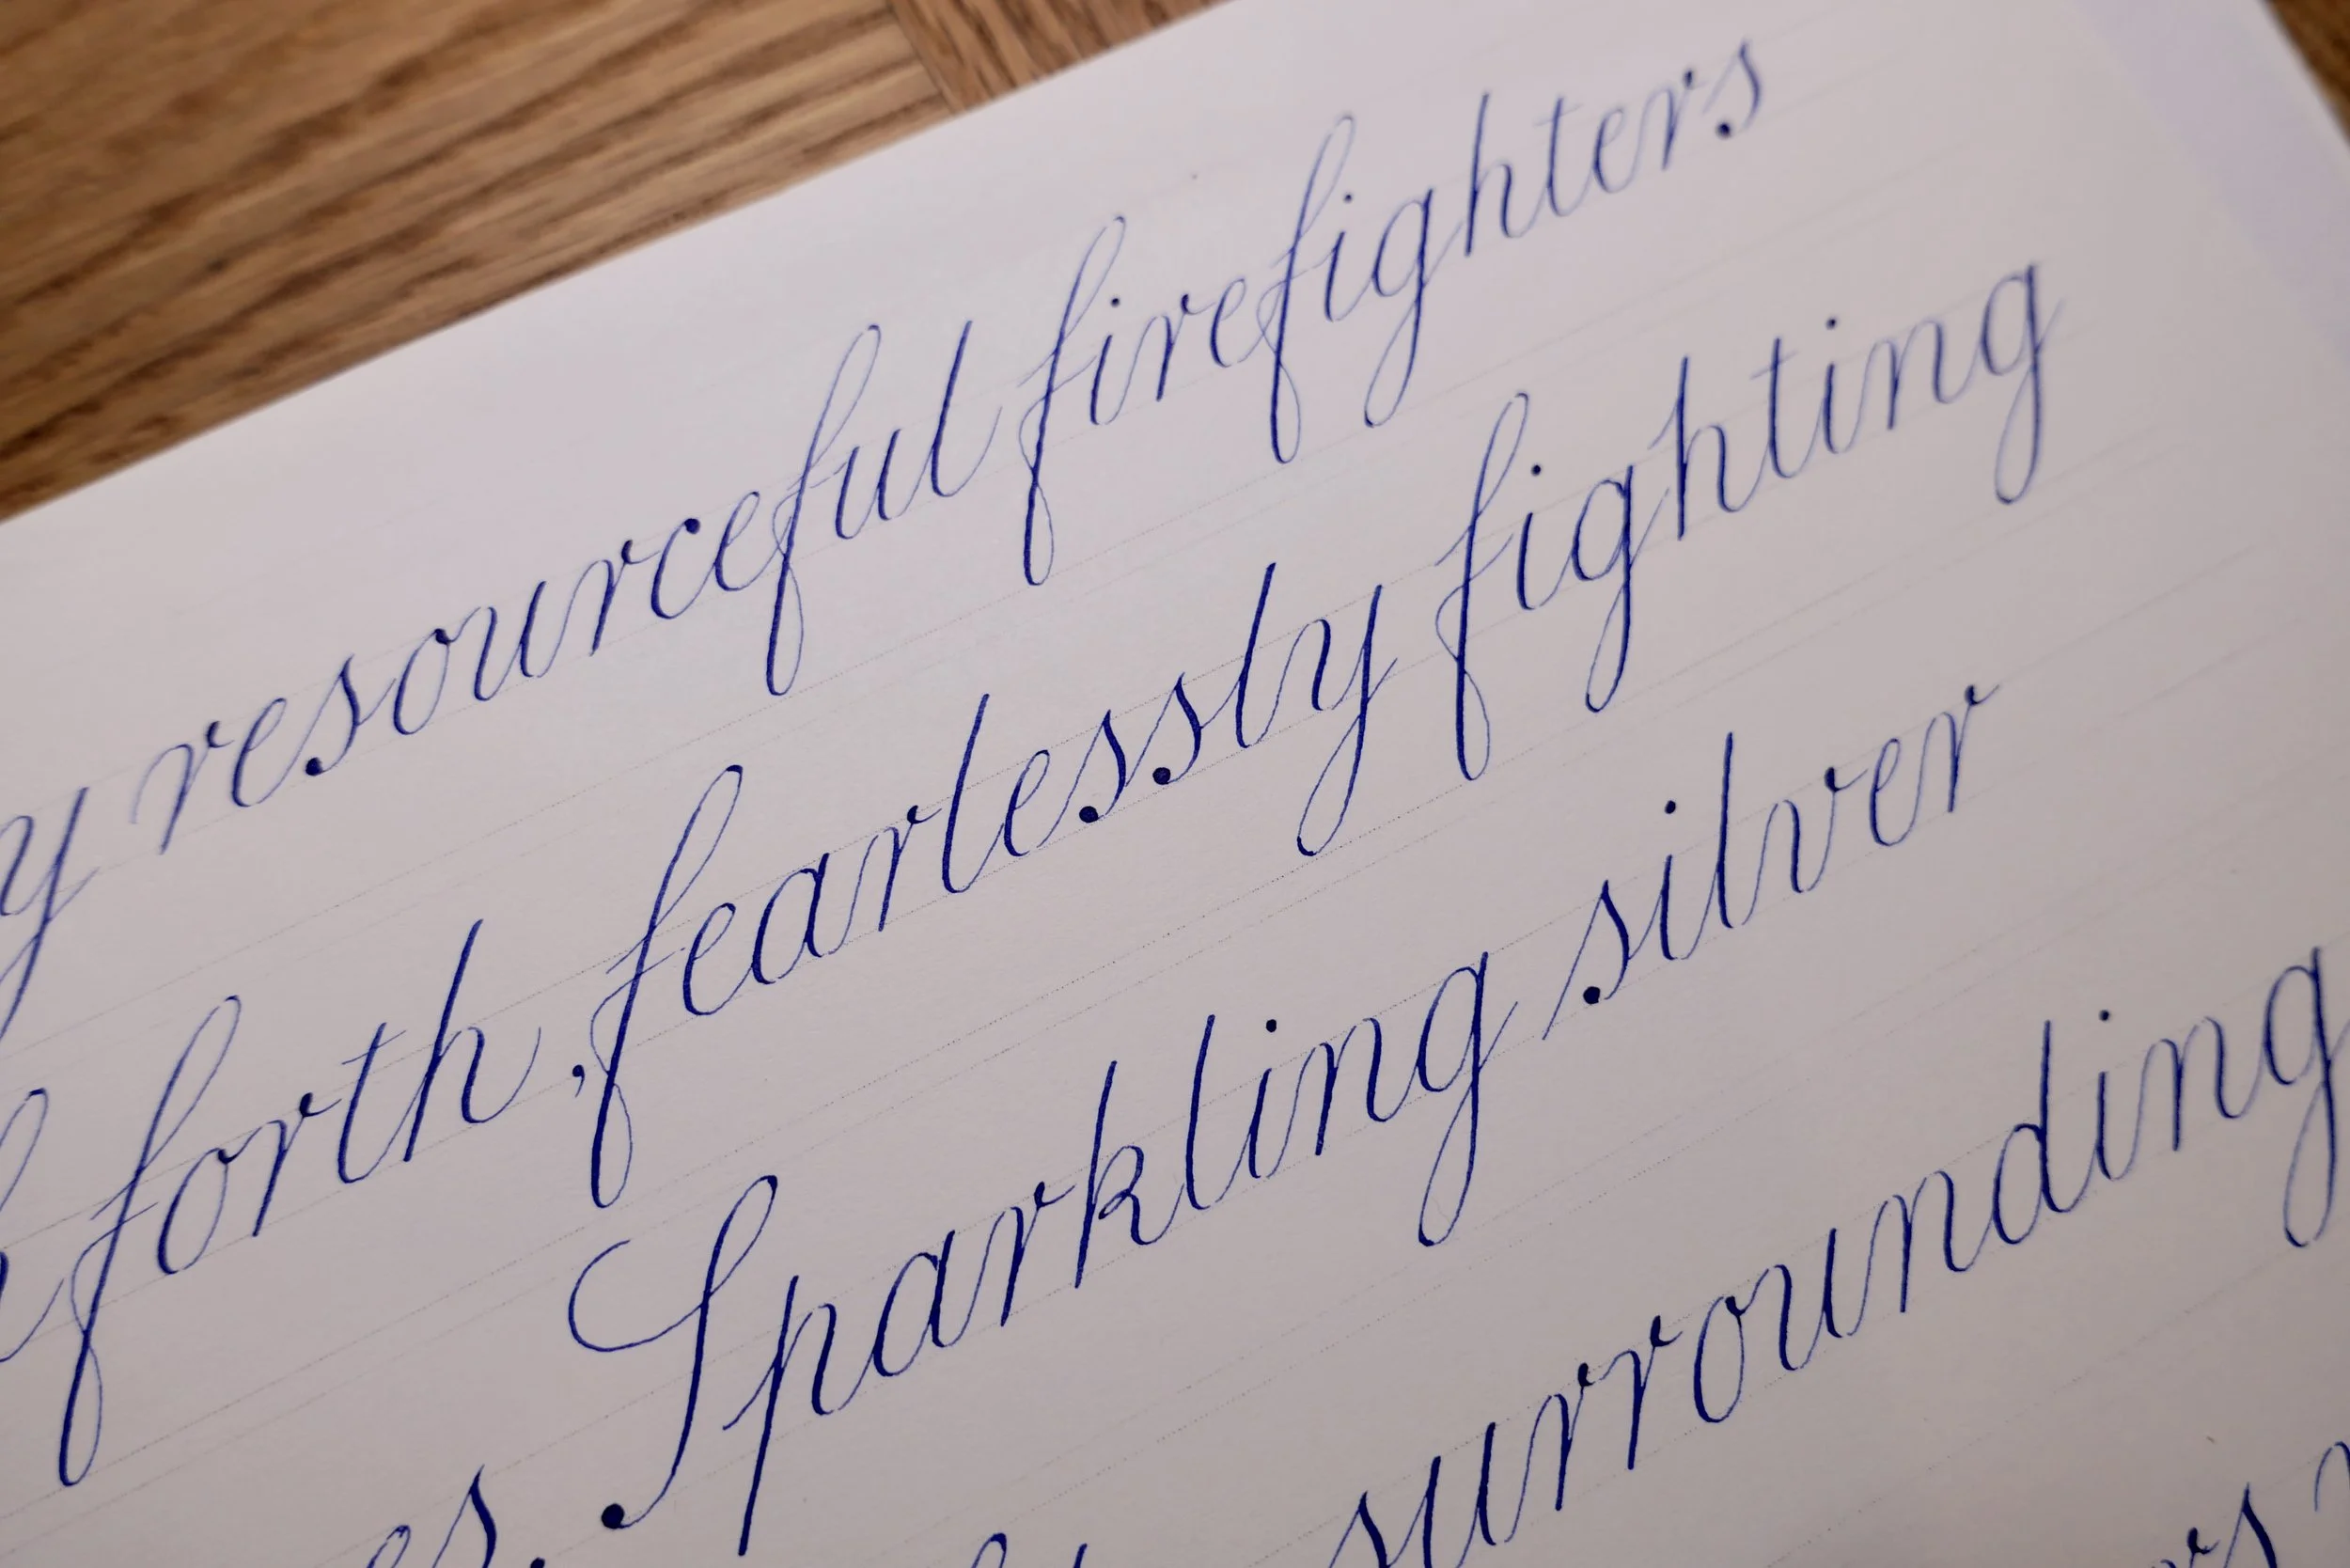 resourceful firefighters
forth, fearlessly fighting
Sparkling silver
surrounding